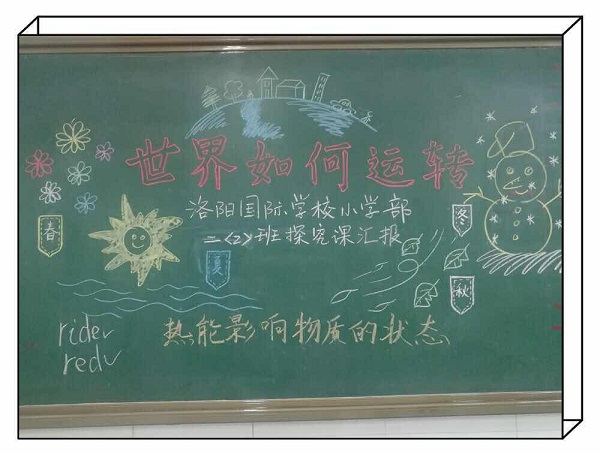 世界如何运转
洛阳国际学校小学部
二〈2〉班探究课汇报
春
夏
冬
秋
热能影响物质的状态